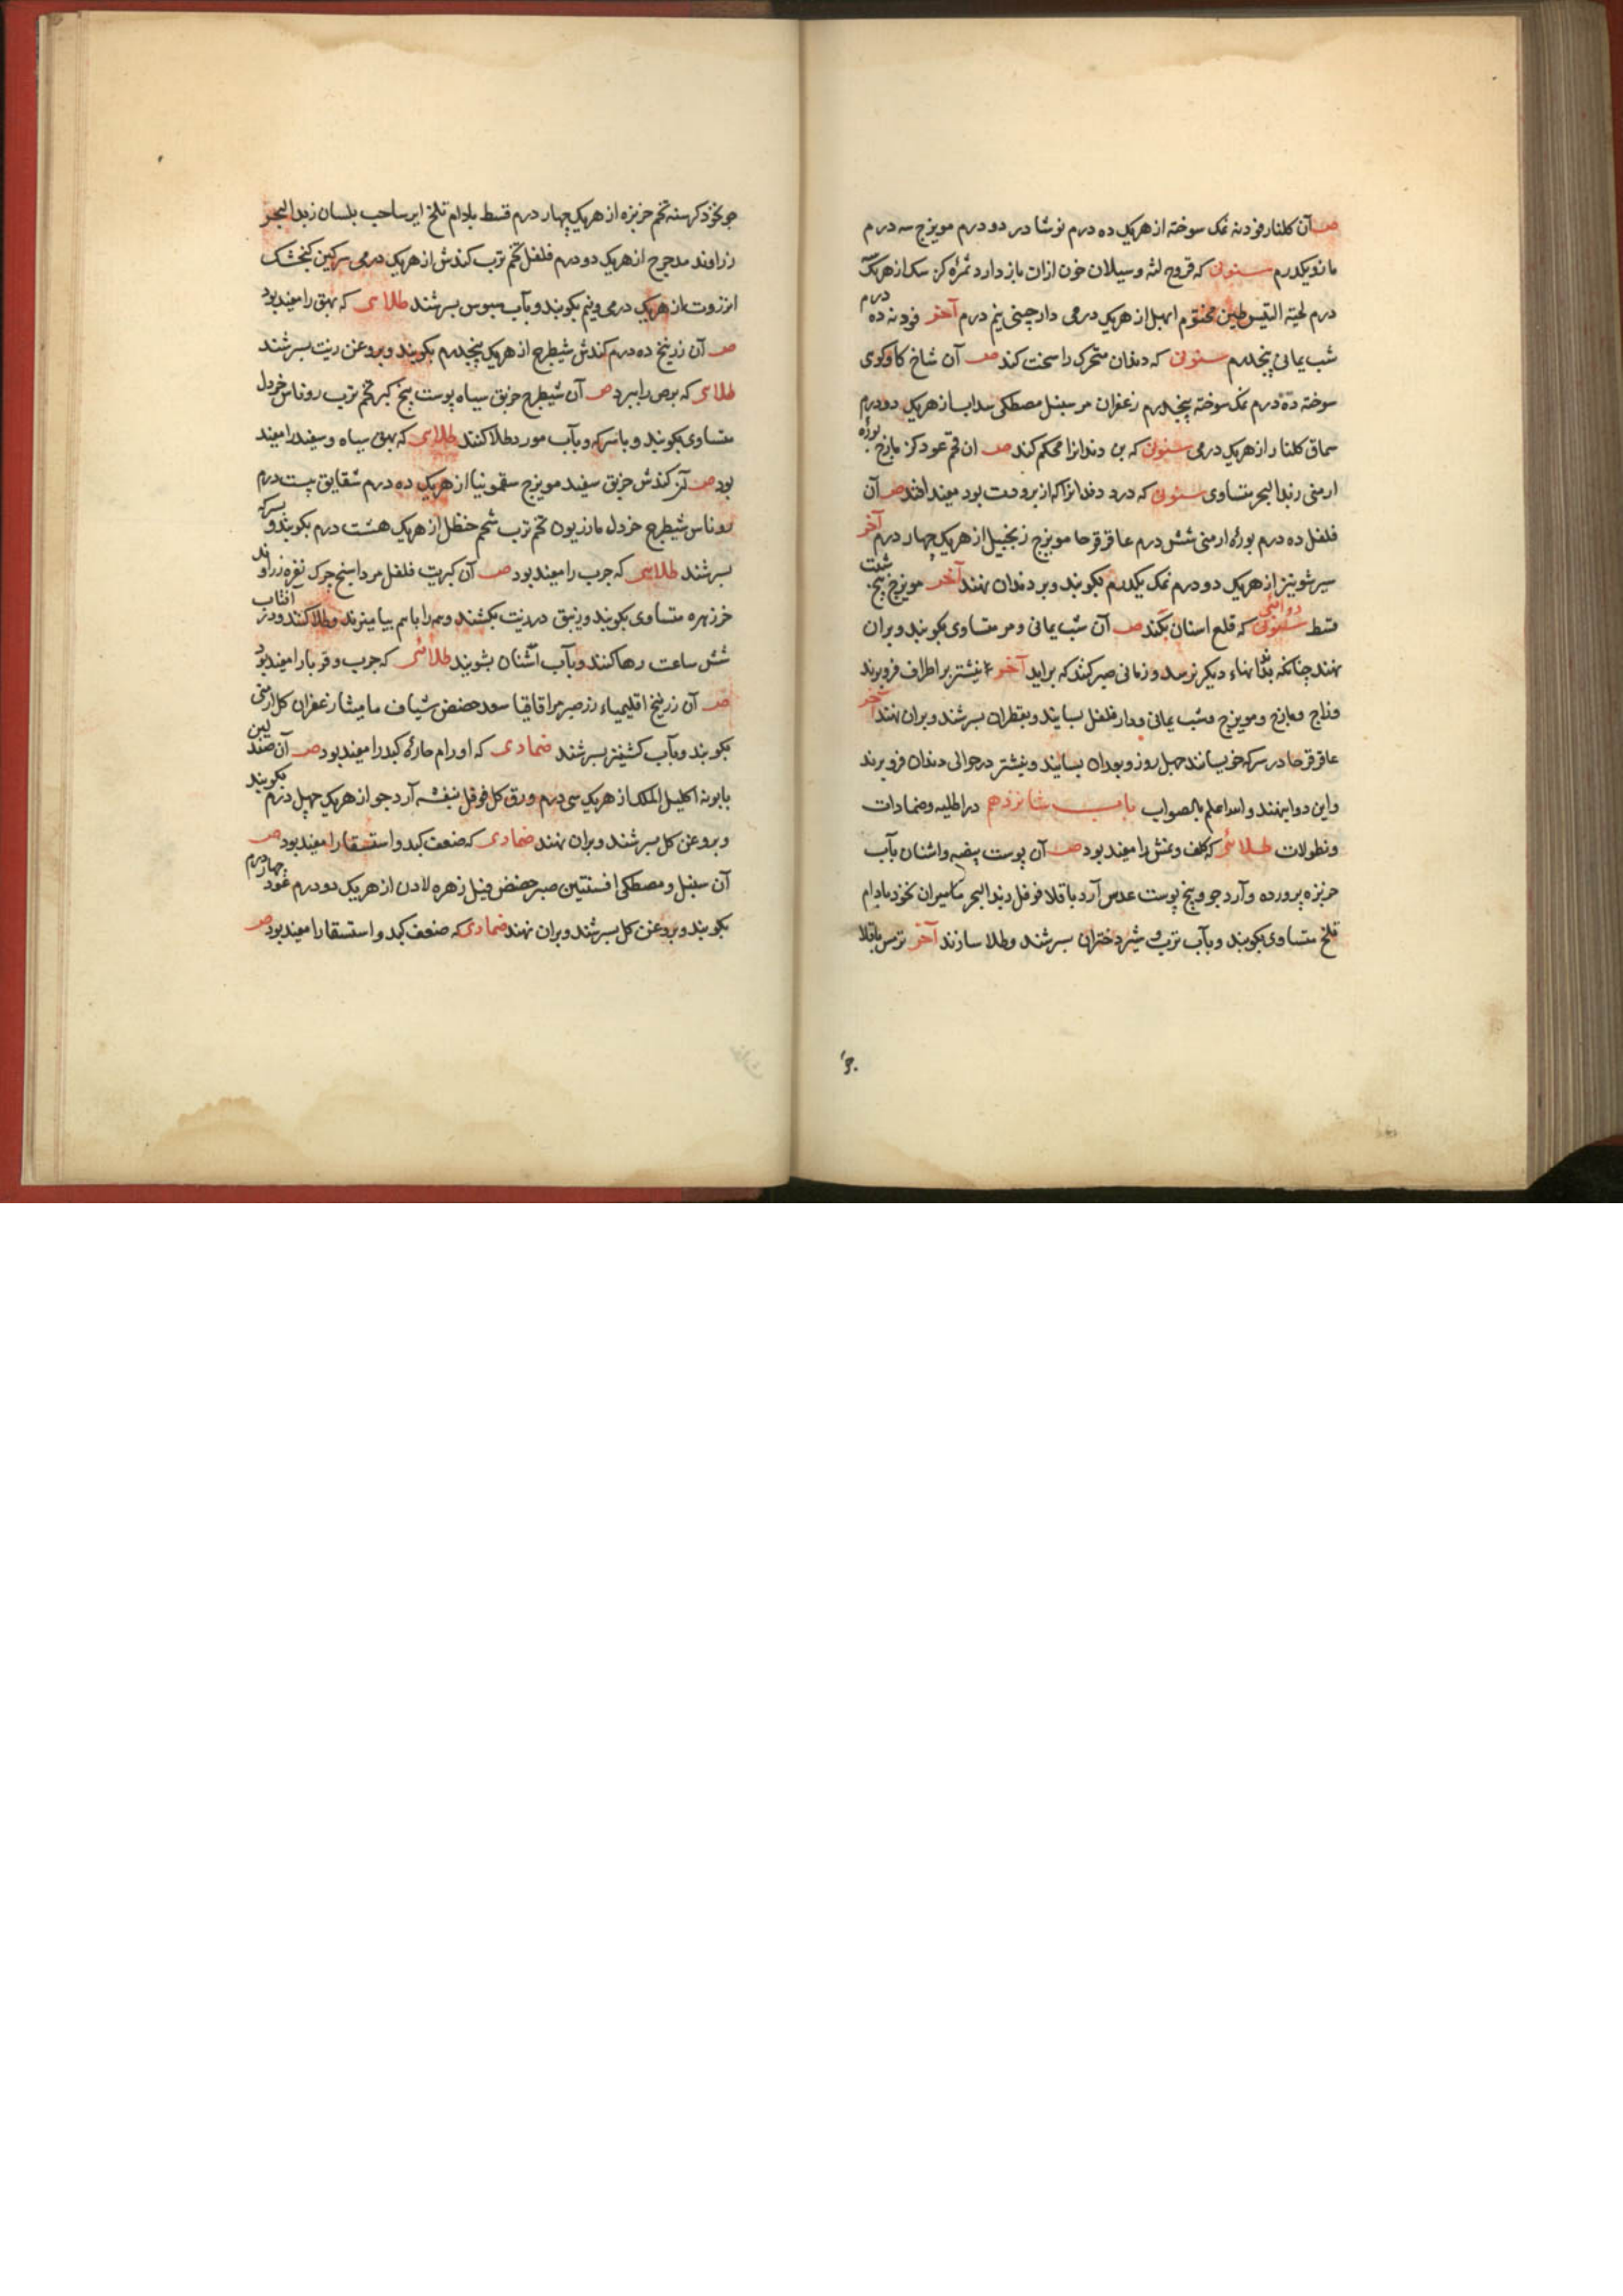 صـ آن کلنار فودنه نمک سوخته از هریک ده درم نوشادر دو درم مویزج سه درم
مازو یکدرم سنونی که قروح لثه و سیلان خون ازان باز دارد ثمرة کز سک از هریک
درم لحیة التیس طین مختوم ابهل از هریک درمی دارچینی نیم درم آخر فودنه ده درم
شب یمانی پنجدرم سنونی که دندان متحرک را سخت کند صـ آن شاخ کاوکوی
سوخته ده درم نمک سوخته پنجدرم زعفران مر سنبل مصطکی سداب از هریک دو درم
سماق کلنار از هریک درمی سنونی که بن دندانرا محکم کند صـ ان فحم عود کز مازج بوره
ارمنی زبد البحر متساوی سنونی که درد دندانرا که از برودت بود مفید افتد صـ آن
فلفل ده درم بوره ارمنی شش درم عاقرقرحا مویزج زنجبیل از هریک چهار درم آخر
سیر شونیز از هریک دو درم نمک یکدرم بکوبند و بر دندان نهند آخر مویزج بنج شبت
قسط سنونی دوائی که قلع اسنان بکند صـ آن شب یمانی و مر متساوی بکوبند و بران
نهند چنانکه بدندانهاء دیکر نرسد و زمانی صبر کنند که براید آخر نیشتر بر اطراف فرو برند
وزاج ومازج و مویزج و شب یمانی و دارفلفل بسایند و بقطران بسرشند و بران نهند آخر
عاقرقرحا در سرکه خویسانند چهل روز و بعدان بسایند و نیشتر در حوالی دندان فرو برند
واین دوا بنهند والله اعلم بالصواب باب شانزدهم در اطلیه وضمادات
ونطولات طلائی که کلف و نمش را مفید بود صـ آن پوست بیضه و اشنان بآب
خربزه پرورده و آرد جو و بنج پوست عدس آرد باقلا فوفل زبد البحر مامیران نخود بادام
تلخ متساوی بکوبند و بآب ترب و شیر دختران بسرشند و طلا سازند آخر ترمس باقلا
جو
جو نخود کرسنه تخم خربزه از هریک چهار درم قسط بادام تلخ ایرسا حب بلسان زبد البحر
زراوند مدحرج از هریک دو درم فلفل تخم ترب کندش از هریک درمی سرکین کنجشک
انزروت از هریک درمی و نیم بکوبند و بآب سبوس بسرشند طلائی که بهق را مفید بود
صـ آن زرنیخ ده درم کندش شیطرج از هریک پنجدرم بکوبند و بروغن زیت بسرشند
طلائی که برص را ببرد صـ آن شیطرج خربق سیاه پوست بیخ کبر تخم ترب روناس خردل
متساوی بکوبند و با سرکه و بآب مورد طلا کنند طلائی که بهق سیاه و سفید را مفید
بود صـ آن کندش خربق سفید مویزج سقمونیا از هریک ده درم شقایق بیست درم
روناس شیطرج خردل مازریون تخم ترب شحم حنظل از هریک هشت درم بکوبند و بسرکه
بسرشند طلائی که جرب را مفید بود صـ آن کبریت فلفل مرداسنج چرک نقره زراوند
خرزهره متساوی بکوبند و زیبق در زیت بکشند و همه را باهم بیامیزند و طلا کنند و در آفتاب
شش ساعت رها کنند و بآب اشنان بشویند طلائی که جرب و قوبا را مفید بود
صـ آن زرنیخ اقلیمیاء زر صبر مر اقاقیا سعد حضض شیاف مامیثا زعفران کل ارمنی
بکوبند و بآب کشنیز بسرشند ضمادی که اورام حاره کبد را مفید بود صـ آن صندلین
بابونه اکلیل الملک از هریک سی درم ورق کل فوفل بنفشه آرد جو از هریک چهل درم بکوبند
و بروغن کل بسرشند و بران نهند ضمادی که ضعف کبد و استسقا را مفید بود صـ
آن سنبل و مصطکی افسنتین صبر حضض فیل زهره لادن از هریک دو درم عود چهار درم
بکوبند و بروغن کل بسرشند و بران نهند ضمادی که ضعف کبد و استسقا را مفید بود صـ